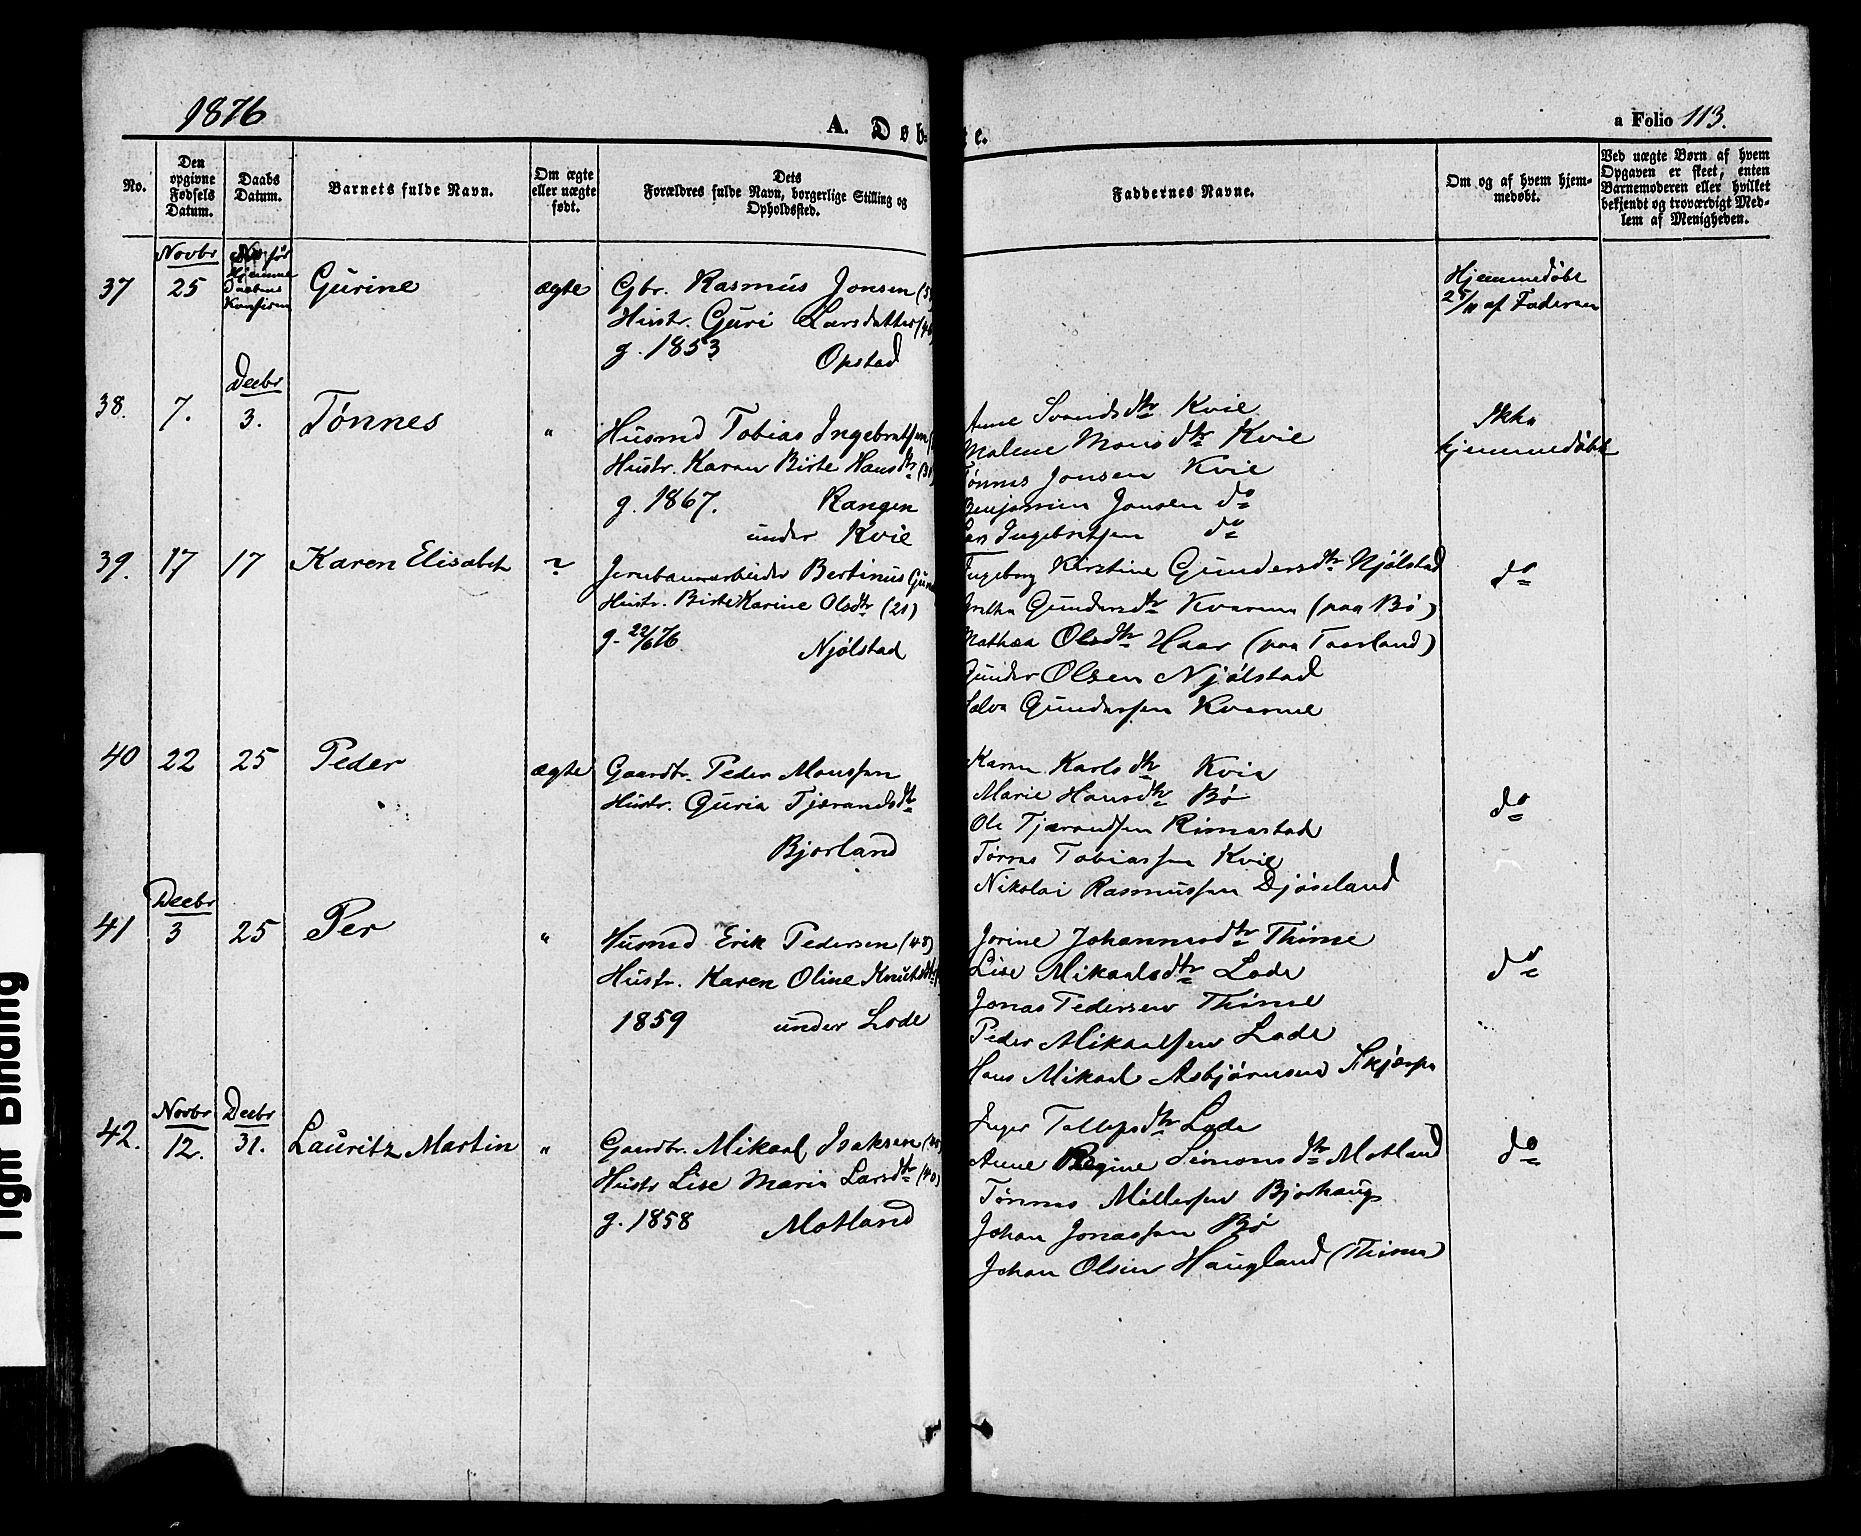 1876
A. Døb-
te.
a Folio 113.
No.
Den opgivne Fødsels Datum.
Daabs Datum.
Barnets fulde Navn.
Om ægte eller uægte født.
Dets Forældres fulde Navn, borgerlige Stilling og Opholdssted.
Faddernes Navne.
Om og af hvem hjemmedøbt.
Ved uægte Børn af hvem Opgaven er skeet, enten Barnemoderen eller hvilket bekjendt og troværdigt Medlem af Menigheden.
Novbr
37 25 Gurine ægte Gbr. Rasmus Jonsen
Hustr. Guri Larsdatter
g. 1853 Opstad
Hjemmedøbt
25/11 af Faderen
Decbr
38. 7. 3. Tønnes " Husmd Tobias Ingebretsen
Hustr. Karen Birte Hansdtr
g. 1867. Rangen
under Kvie
Ane Svendsdtr Kvie
Malene Monsdtr Kvie
Tønnes Jonsen Kvie
Benjamin Jonsen do
Lars Ingebretsen do
Ikke
hjemmedøbt
39. 17 17 Karen Elisabet ? Jernbanearbeider Bertinus
Hustr. Birte Karine Olsdtr (21)
g. 22/6 76. Njølstad
Ingeborg Kirstine Gundersdtr Njølstad
Grethe Gundersdtr Kvarme (paa Bø)
Mathea Olsdtr Haar (paa Taarland)
Gunder Olsen Njølstad
Salve Gundersen Kvarme
do
40 22 25 Peder ægte Gaardbr. Peder Monssen
Hustr. Guria Tjærandsdtr
Bjorland
Karen Karlsdtr Kvie
Marie Hansdtr Bø
Ole Tjærandsen Rimestad
Tønnes Tobiassen Kvie
Nikolai Rasmussen Djøseland
do
Decbr
41 3 25 Per " Husmd Erik Pedersen (48)
Hustr. Karen Oline Knutsdtr
1859 under Lode
Jorine Johannesdtr Thime
Lise Mikaelsdtr Lode
Jonas Pedersen Thime
Peder Mikaelsen Lode
Hans Mikael Asbjørnsen Skjærpe
do
Novbr Decbr
42. 12. 31. Lauritz Martin " Gaardbr. Mikael Isaksen
Hustr Lise Maria Larsdtr (40)
g. 1858 Motland
Inger Tollefsdtr Lode
Anne Regine Simonsdtr Motland
Tønnes Møllersen Bjorhaug
Johan Jonassen Bø
Johan Olsen Haugland (Thime)
do
Tight Binding